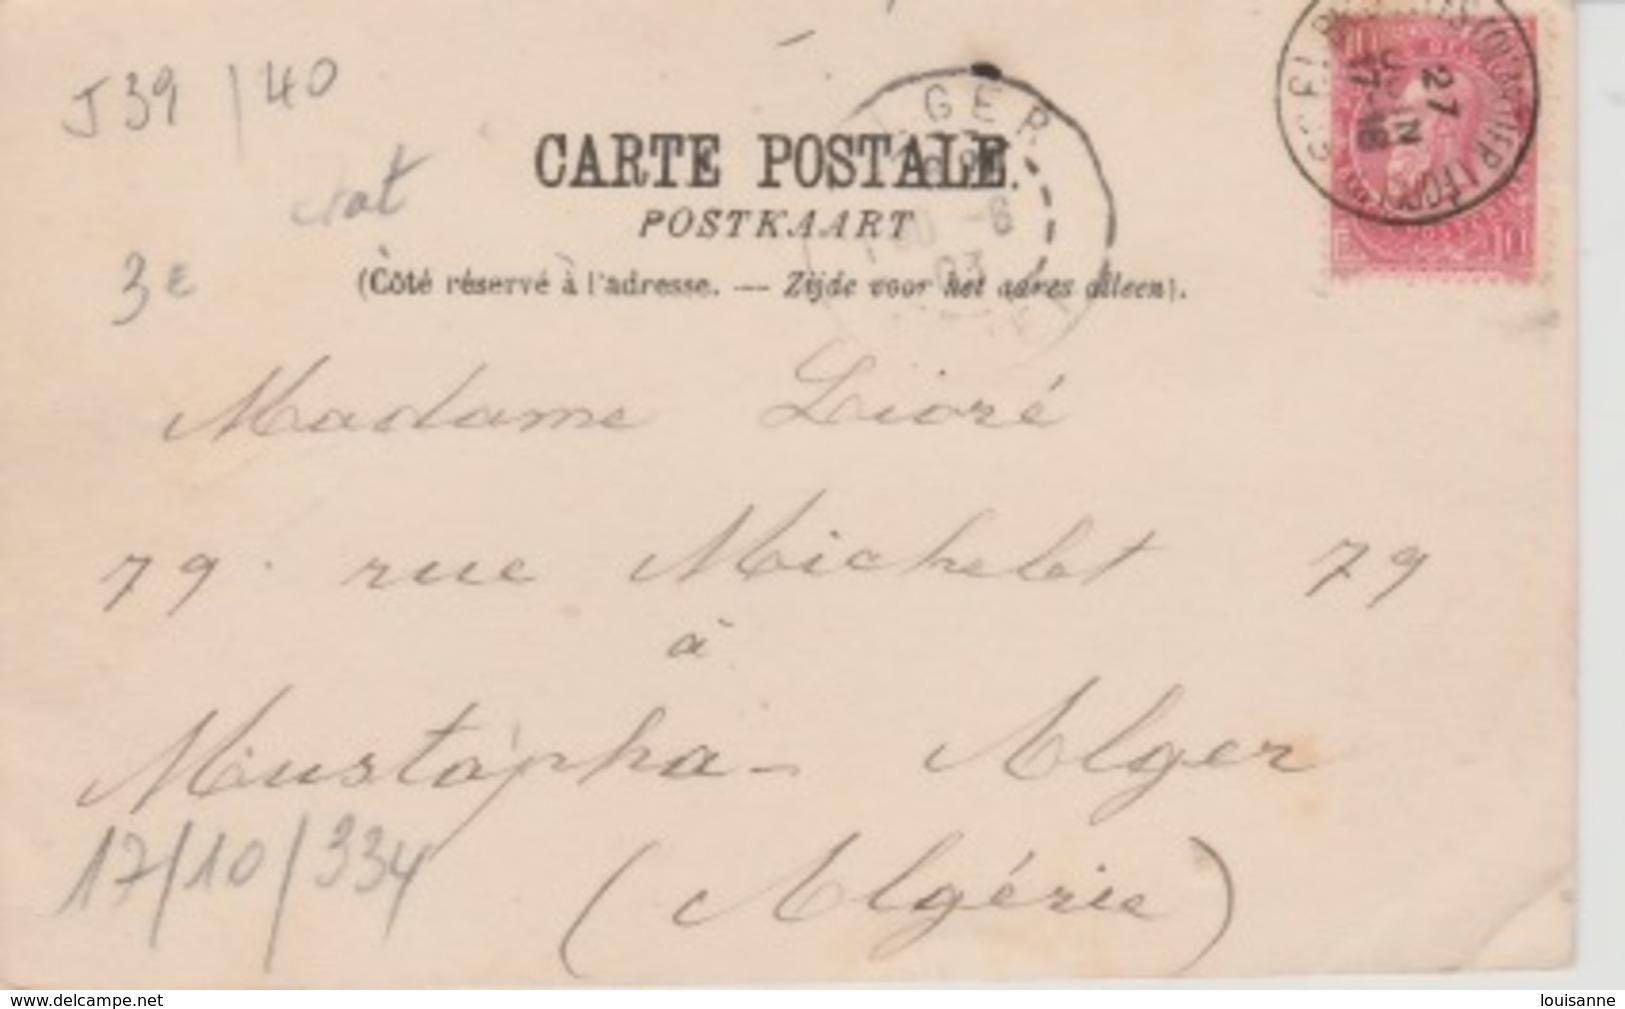 J 39 / 40
3 €
CARTE POSTALE.
POSTKAART
(Côté réservé à l'adresse. — Zijde voor het adres alleen).
LGER
-6
03
27
JUIN
(QUARTIER LÉOPOLD)
10
Madame Lioré
79. rue Michelet 79
à
Mustapha - Alger
(Algérie)
17/10/334
www.delcampe.net
louisanne